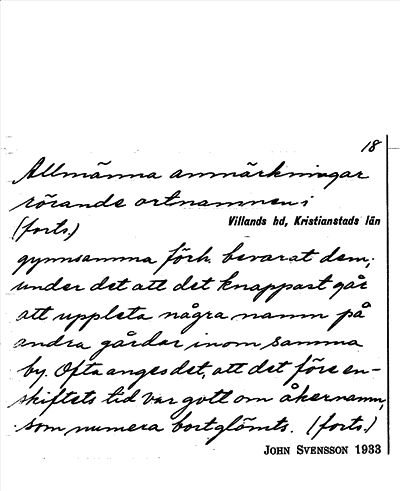 18
Allmänna anmärkningar
rörande ortnamnen i
Villands hd, Kristianstads län
(forts.)
gynnsamma förh. bevarat dem,
under det att det knappast går
att uppleta några namn på
andra gårdar inom samma
by. Ofta anges det, att det före en-
skiftets tid var gott om åkernamn,
som numera bortglömts. (forts.)
JOHN SVENSSON 1933